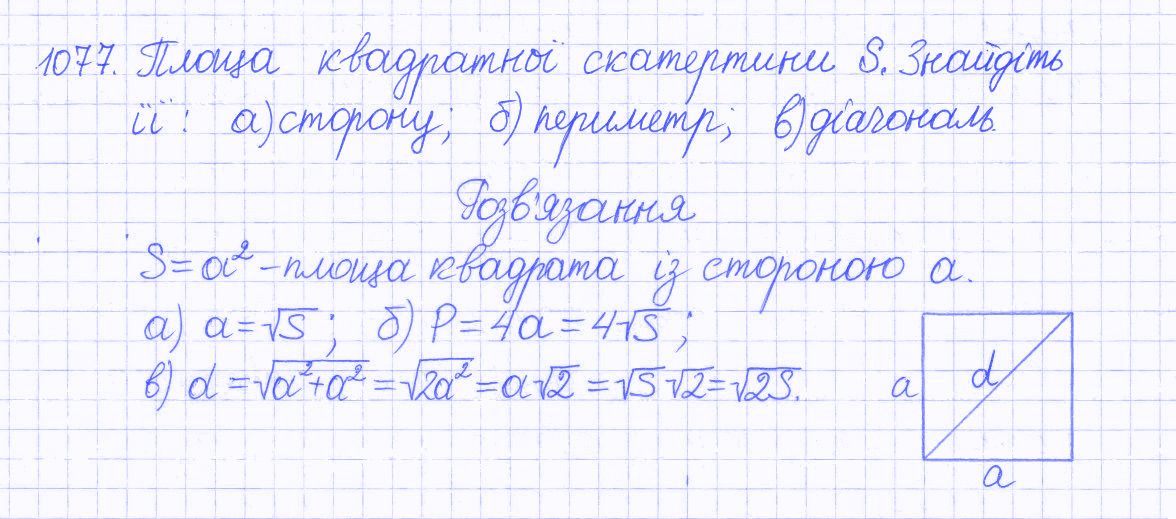 1077. Площа квадратної скатертини S. Знайдіть
її: а) сторону; б) периметр; в) діагональ.
Розв'язання
S = a² – площа квадрата із стороною a.
а) a = √S; б) P = 4a = 4√S;
в) d = √(a²+a²) = √(2a²) = a√2 = √S √2 = √2S.
d
a
a